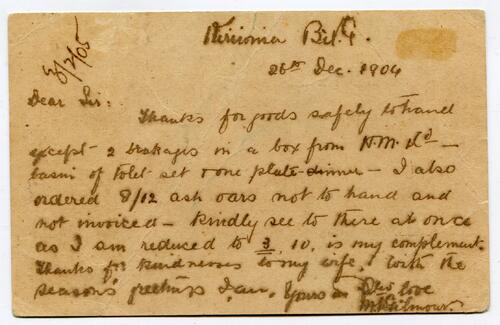 3/2/05
26th Dec. 1904
Dear Sir:
Thanks for goods safely to hand
except 2 breakages in a box from
basin of toilet set & one plate-dinner - I also
ordered 8/12 ash oars not to hand and
not invoiced - kindly see to there at once
as I am reduced to 3, 10, is my complement.
Thanks for kindnesses to my wife, with the
season's greetings I am, Yours in
love
Gilmour.